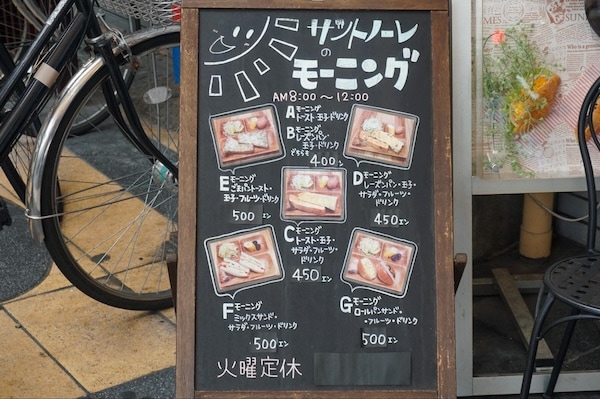 サントノーレ
の
モーニング
AM8:00～12:00
Aモーニング
トースト・玉子・ドリンク
Bモーニング
レーズンパン・
玉子・ドリンク
どちらも
400エン
Eモーニング
ごまパントースト・
玉子・フルーツ・ドリンク
500エン
Dモーニング
レーズンパン・玉子・
サラダ・フルーツ・
ドリンク
450エン
Cモーニング
トースト・玉子・
サラダ・フルーツ・
ドリンク
450エン
Fモーニング
ミックスサンド・
サラダ・フルーツ・ドリンク
500エン
Gモーニング
ロールパンサンド・
・フルーツ・ドリンク
500エン
火曜定休